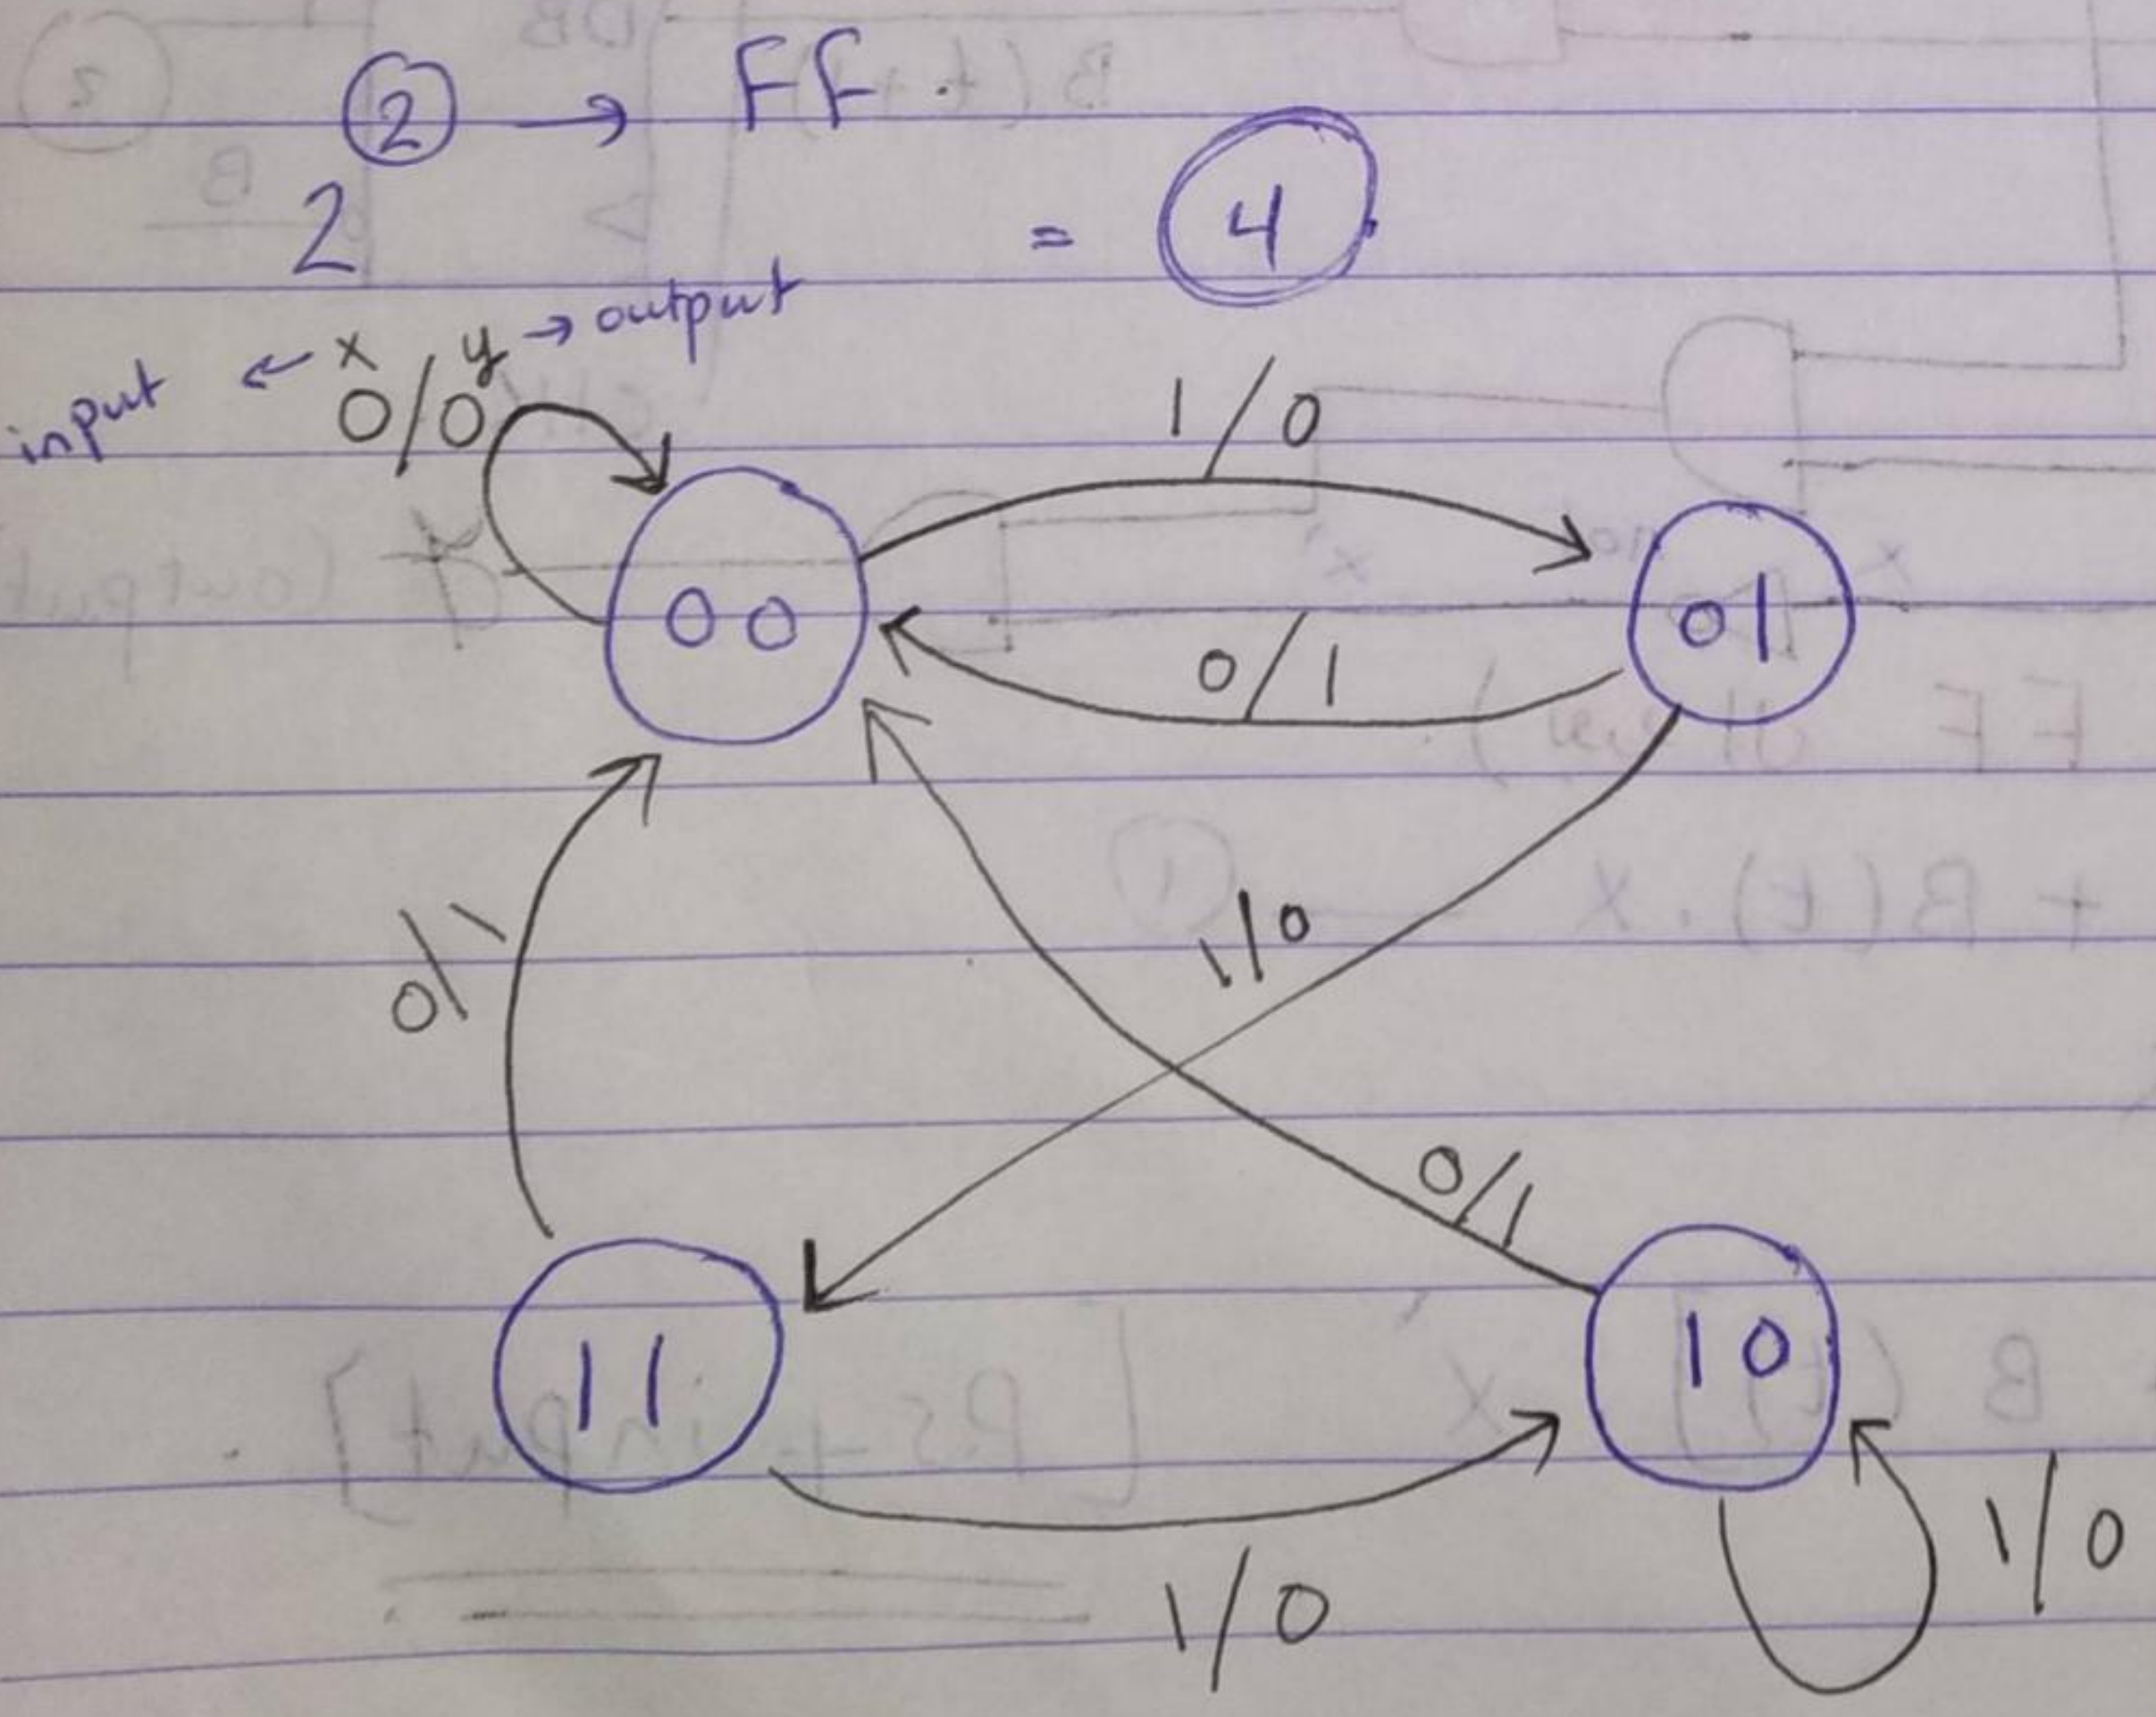 ② → FF.
2 = ④
input ← x y → output
0/0
1/0
00
01
0/1
1/0
0/1
0/1
11
10
1/0
1/0